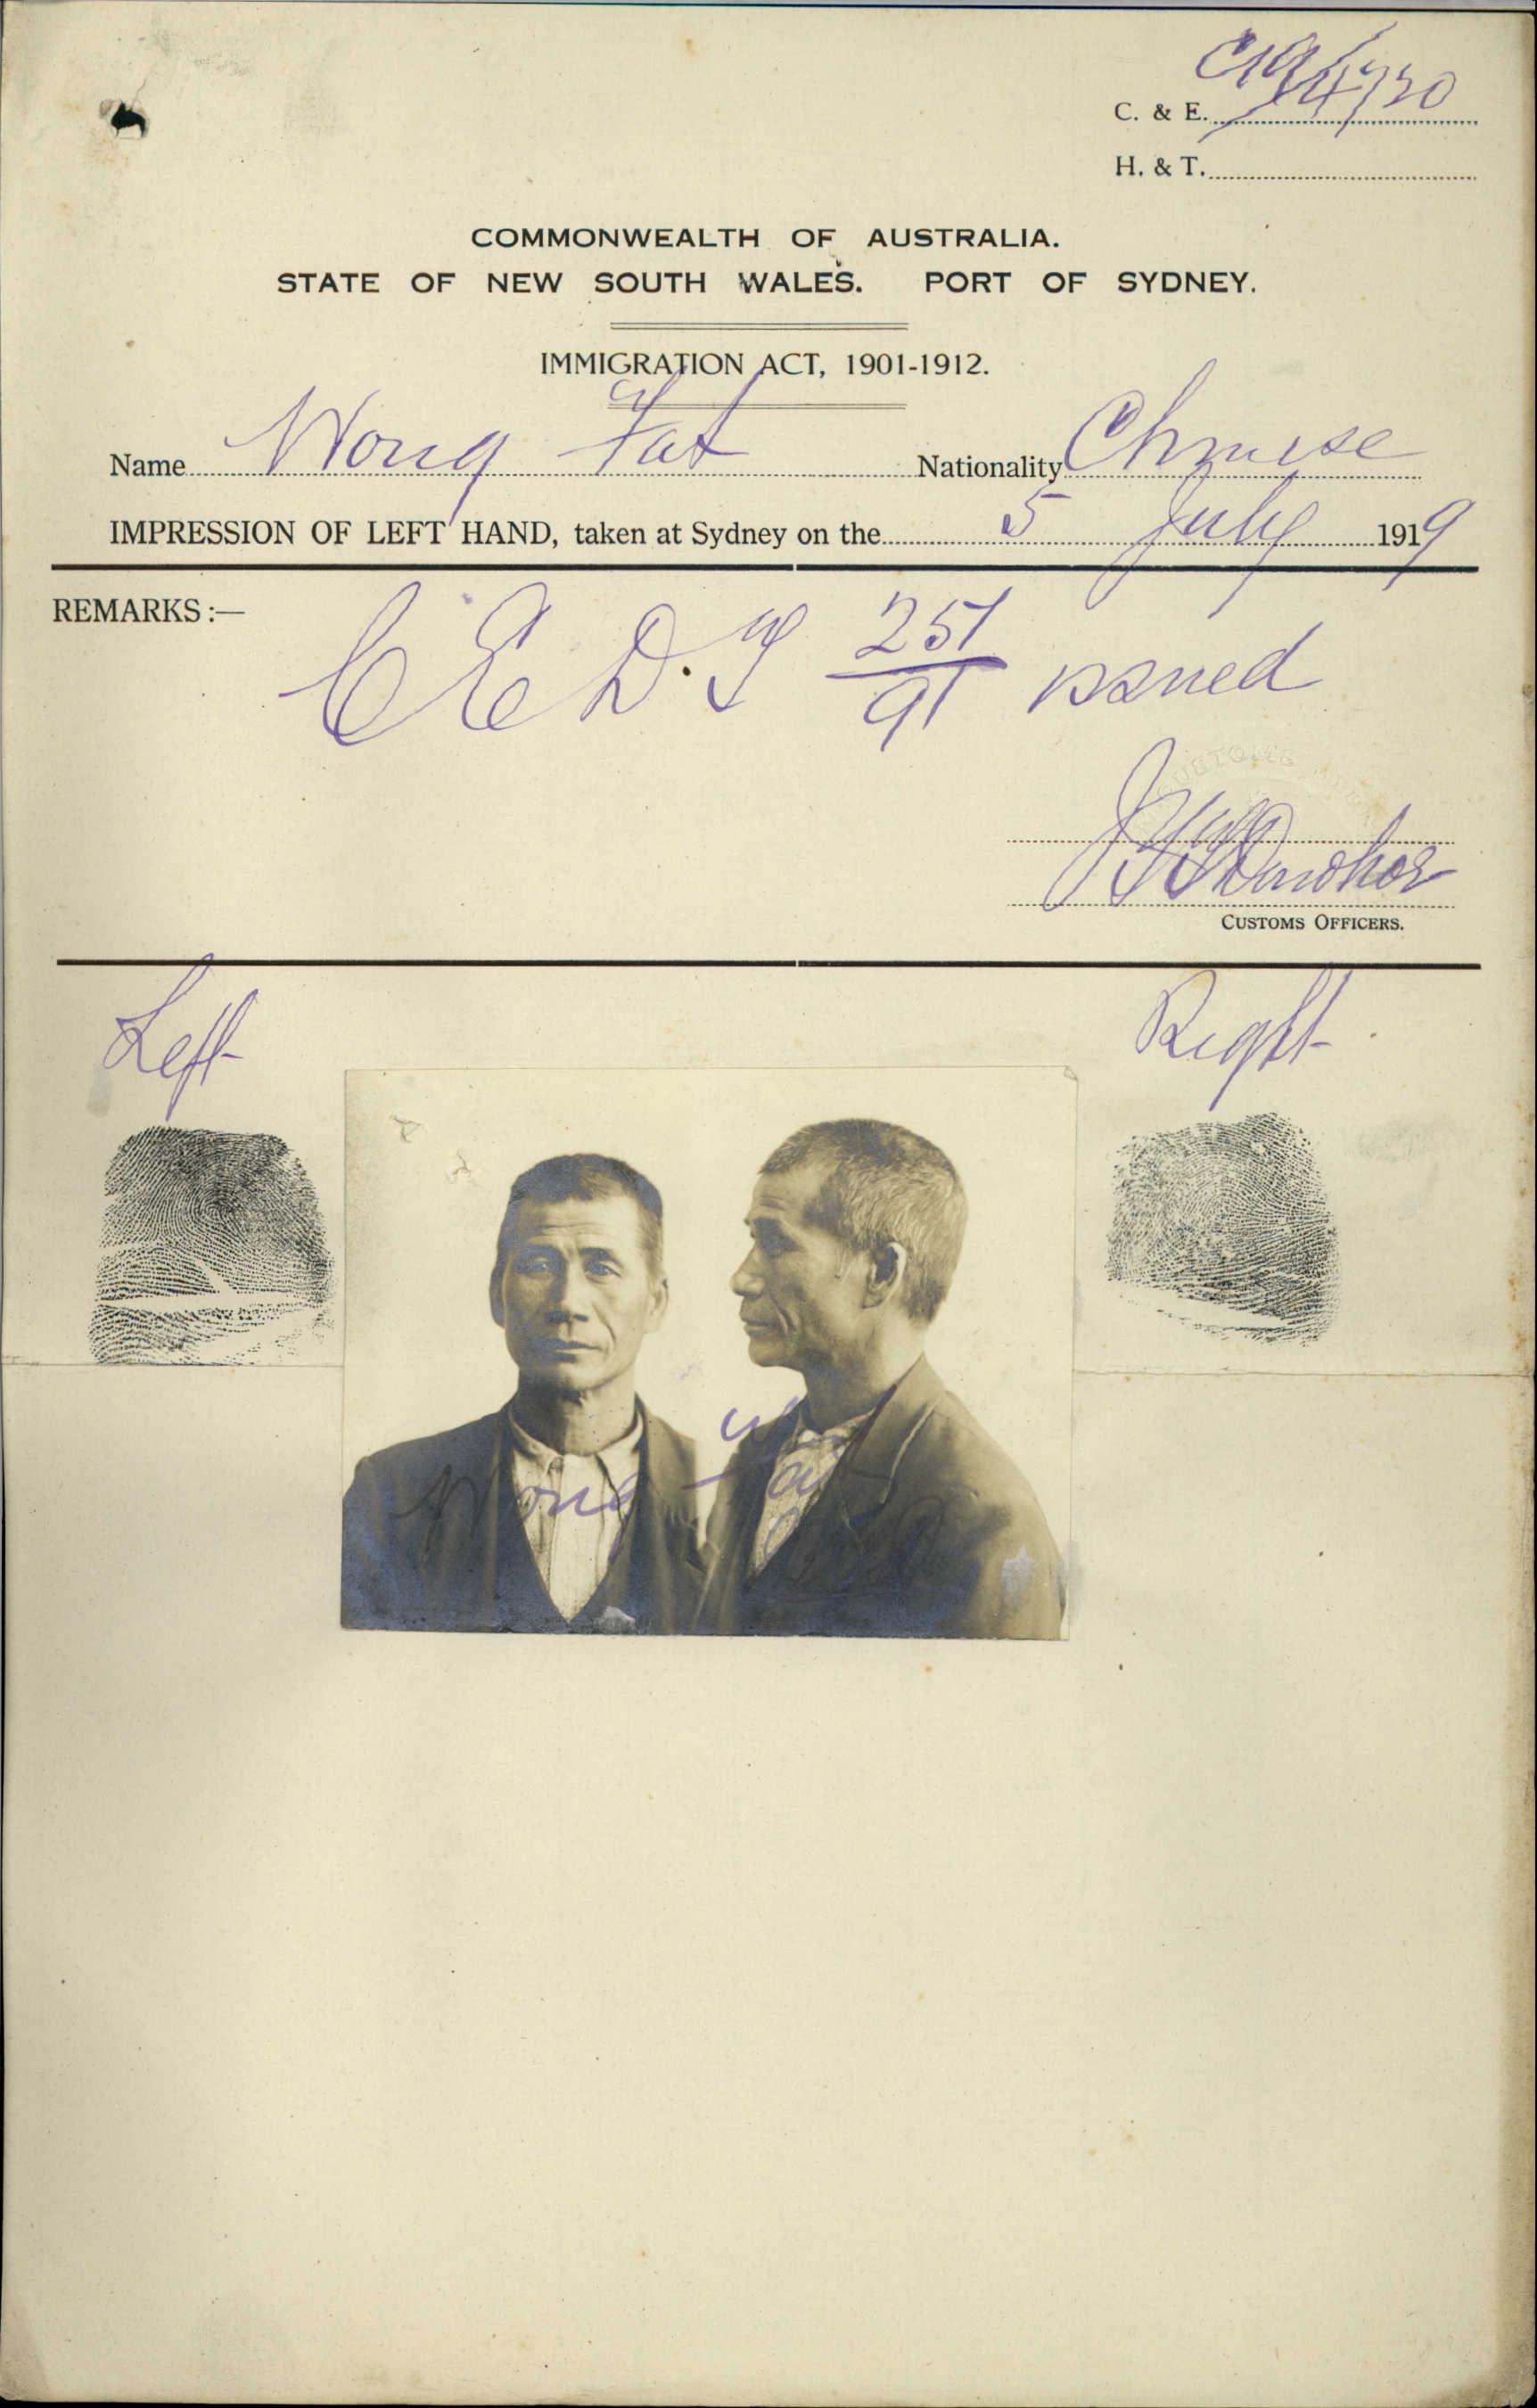 C19/4720
C. & E.
H. & T.
COMMONWEALTH OF AUSTRALIA.
STATE OF NEW SOUTH WALES. PORT OF SYDNEY.
IMMIGRATION ACT, 1901-1912.
Name Wong Fat Nationality Chinese
IMPRESSION OF LEFT HAND, taken at Sydney on the 5 July 1919
REMARKS :—
C E D. T 251/91 issued
CUSTOMS
Donohoe
CUSTOMS OFFICERS.
Left Right
Wong Fat